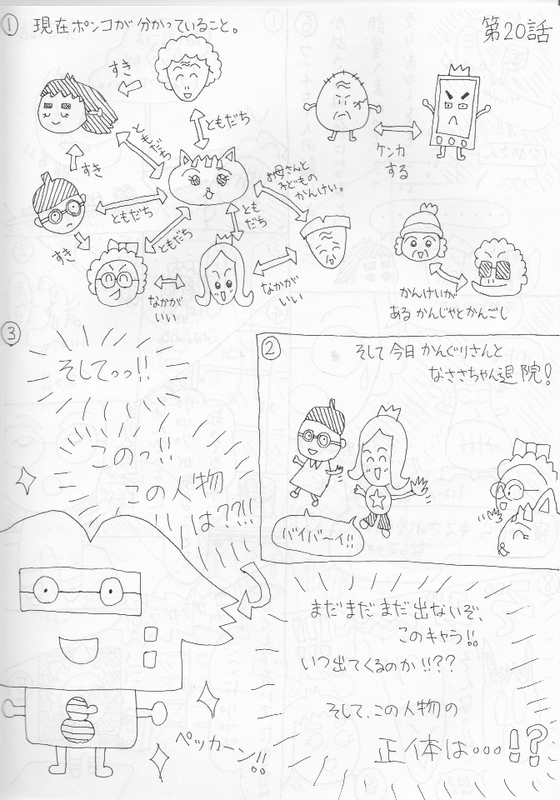 第20話
① 現在ポンコが分かっていること。
すき
ともだち
ともだち
すき
ともだち
お母さんと
子どもの
かんけい。
すき
ともだち
とも
だち
なかが
いい
なかが
いい
ケンカ
する
かんけいが
ある かんじゃとかんごし
②
そして今日 かんぐりさんと
なささちゃん退院!
バイバーイ!!
③
そしてっっ!!
このっ!!
この人物
は??!!
ペッカーン!!
まだまだまだ出ないぞ、
このキャラ!!
いつ出てくるのか!!??
そして、この人物の
正体は…!?